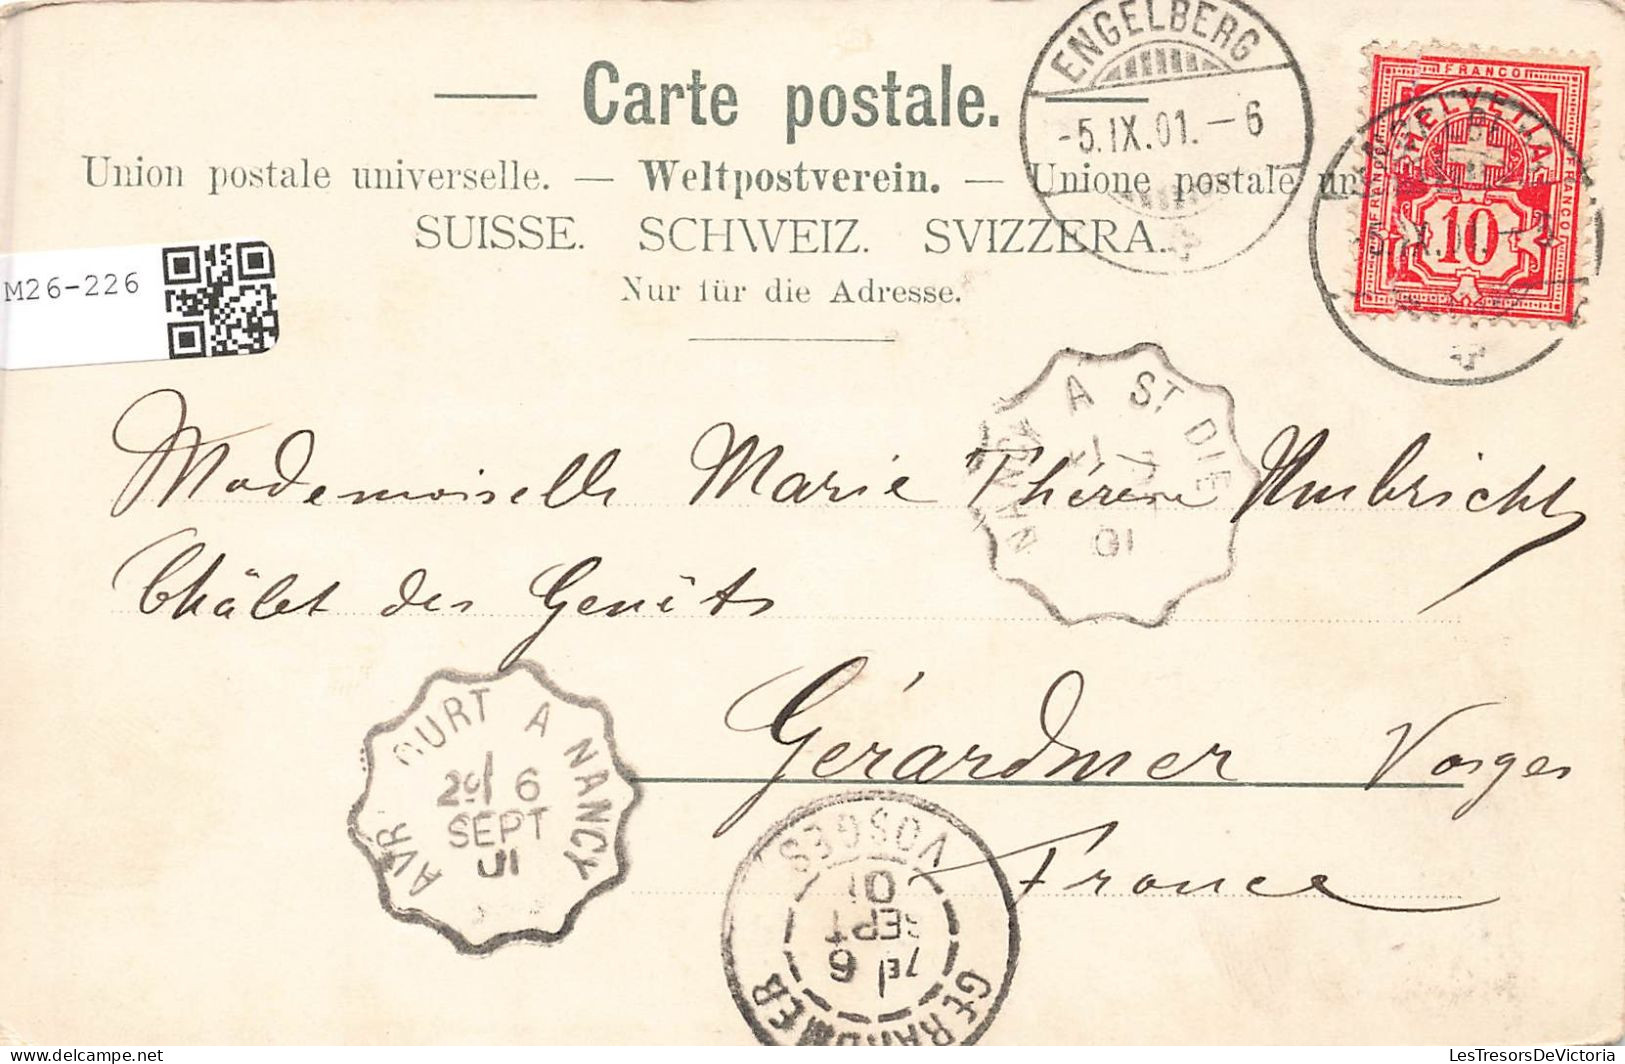 ENGELBERG
-5.IX.01.-6
Carte postale.
FRANCO
HELVETIA
FRANCO
FRANCO
10
Union postale universelle. — Weltpostverein. — Unione postale un
SUISSE. SCHWEIZ. SVIZZERA.
Nur für die Adresse.
M26-226
A ST DIE
NANCY
01
Mademoiselle Marie Thérèse Umbricht
Châlet des Genêts
Gérardmer Vosges
France
AVR COURT A NANCY
2º/ 6
SEPT
01
GERARDMER
7E/ 6
SEPT
01
VOSGES
delcampe.net
LesTresorsDeVictoria